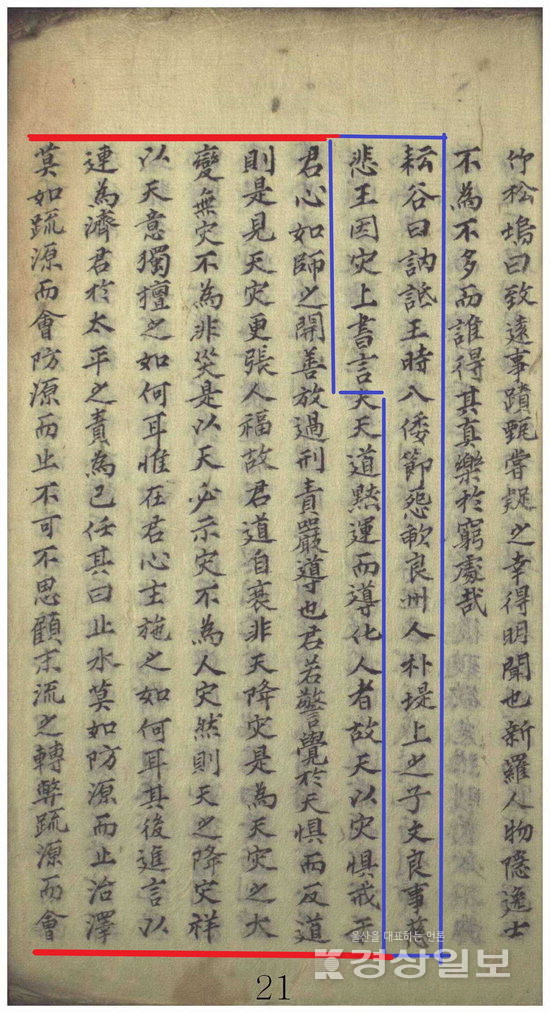 竹松塢曰致遠事蹟甄嘗疑之幸得明聞也新羅人物隱逸士
不為不多而誰得其真樂於窮處哉
耘谷曰訥祗王時入倭節怨歟良州人朴堤上之子文良事慈
悲王因灾上書言夫天道黙運而導化人者故天以灾惧戒
君心如師之開善放過刑責嚴導也君若警覺於天惧而反道
則是見天灾更張人福故君道自衰非天降灾是為天灾之大
變無灾不為非灾是以天必示灾不為人灾然則天之降灾祥
以天意獨擅之如何耳惟在君心主施之如何耳其後進言以
連為濟君於太平之責為己任其曰止水莫如防源而止治澤
莫如疏源而會防源而止不可不思顧末流之轉弊疏源而會
울산을 대표하는 언론
경상일보
21